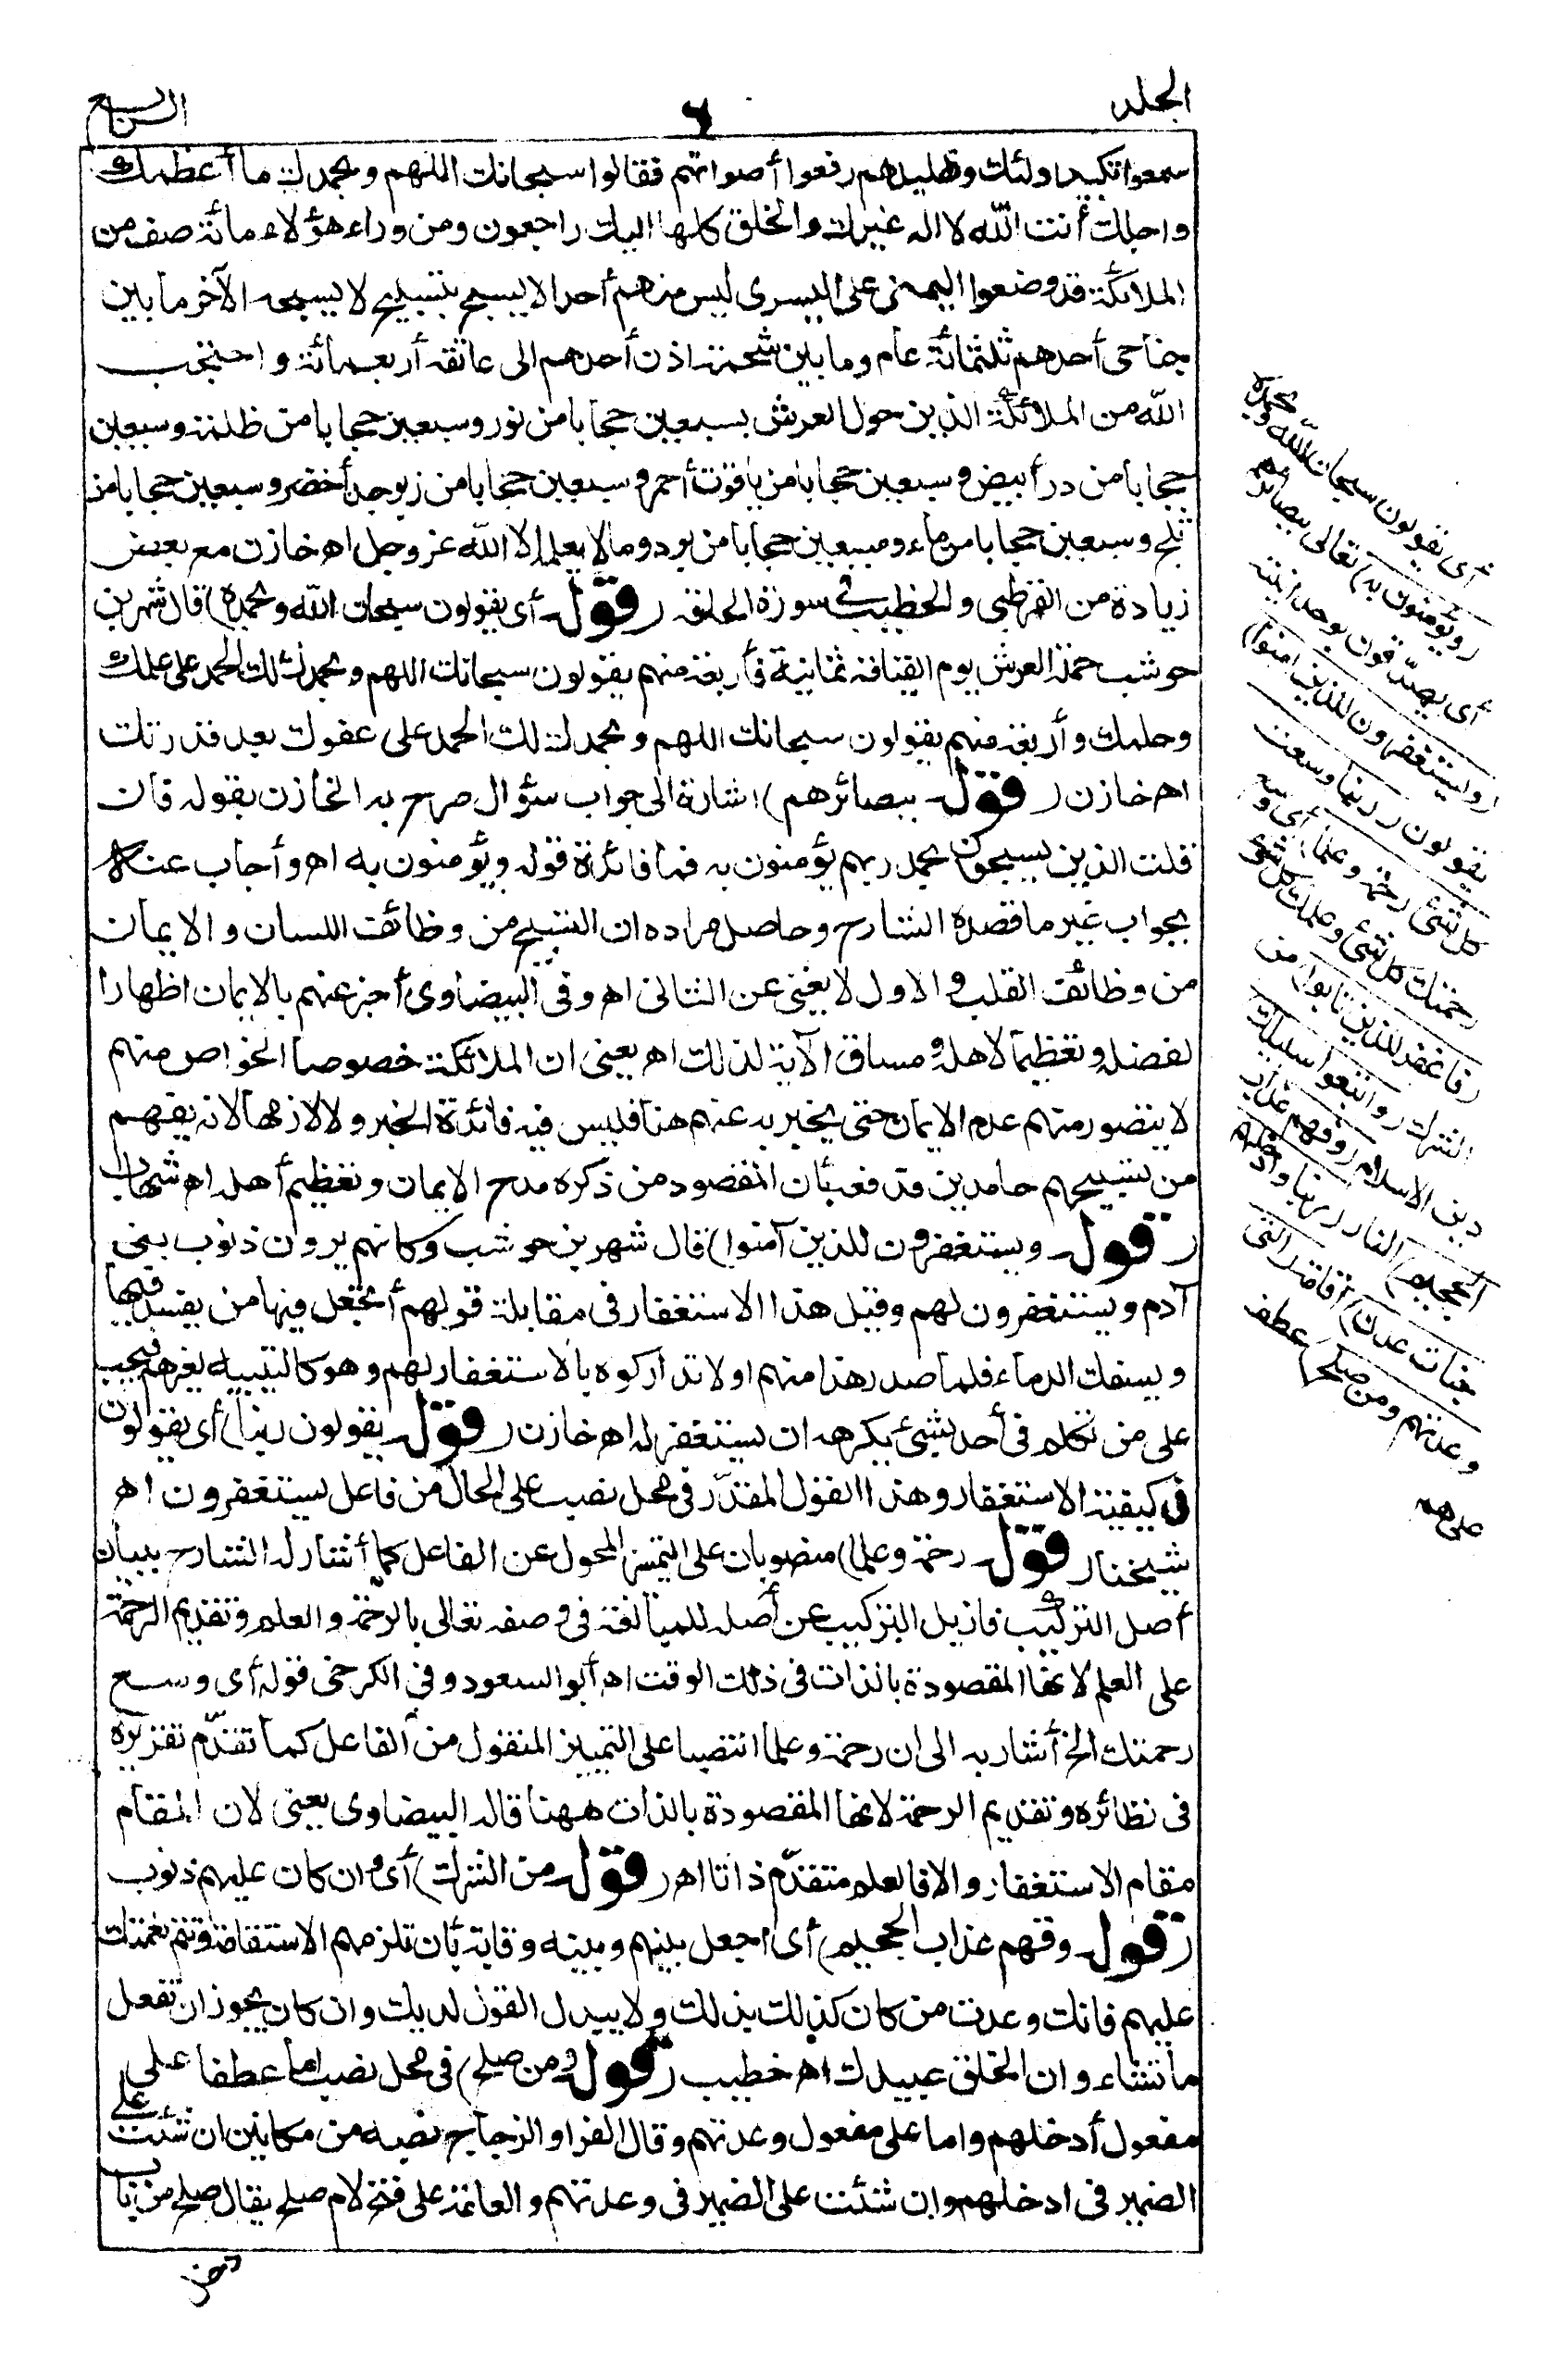 الجلد
٦
الرابع
سمعوا تكبير اولئك وتهليلهم رفعوا أصواتهم فقالوا سبحانك اللهم وبحمدك ما أعظمك
واجلك أنت الله لا اله غيرك والخلق كلها اليك راجعون ومن وراء هؤلاء مائة صف من
الملائكة قد وضعوا اليمنى على اليسرى ليس منهم أحد الا يسبح بتسبيح لا يسبحه الآخر ما بين
جناحي أحدهم ثلثمائة عام وما بين شحمة اذن أحدهم الى عاتقه أربعمائة واحتجب
الله من الملائكة الذين حول العرش بسبعين حجابا من نور وسبعين حجابا من ظلمة وسبعين
حجابا من در أبيض وسبعين حجابا من ياقوت أحمر وسبعين حجابا من زبرجد أخضر وسبعين حجابا من
ثلج وسبعين حجابا من ماء وسبعين حجابا من برد وما لا يعلمه الا الله عز وجل اه خازن مع بعض
زيادة من القرطبي والخطيب في سورة الحاقة (قوله أى يقولون سبحان الله وبحمده) قال شهر بن
حوشب حملة العرش يوم القيامة ثمانية فأربعة منهم يقولون سبحانك اللهم وبحمدك لك الحمد على علمك
وحلمك وأربعة منهم يقولون سبحانك اللهم وبحمدك لك الحمد على عفوك بعد قدرتك
اه خازن (قوله ببصائرهم) اشارة الى جواب سؤال صرح به الخازن بقوله فان
قلت الذين يسبحون بحمد ربهم يؤمنون به فما فائدة قوله ويؤمنون به اه وأجاب عنه
بجواب غير ما قصده الشارح وحاصل مراده ان التسبيح من وظائف اللسان والايمان
من وظائف القلب والاول لا يغنى عن الثانى اه وفى البيضاوى أخبر عنهم بالايمان اظهارا
لفضله وتعظيما لاهله ومساق الآية لذلك اه يعنى ان الملائكة خصوصا الخواص منهم
لا يتصور منهم عدم الايمان حتى يخبر به عنهم هنا فليس فيه فائدة الخبر ولا لازمها لانه يفهم
من تسبيحهم حامدين فدفعه بأن المقصود من ذكره مدح الايمان وتعظيم أهله اه شهاب
(قوله ويستغفرون للذين آمنوا) قال شهر بن حوشب وكانهم يرون ذنوب بنى
آدم ويستغفرون لهم وقيل هذا الاستغفار فى مقابلة قولهم أتجعل فيها من يفسد فيها
ويسفك الدماء فلما صدر هذا منهم اولا تداركوه بالاستغفار لهم وهو كالتنبيه لغيرهم فيجب
على من تكلم فى أحد بشئ يكرهه ان يستغفر له اه خازن (قوله يقولون ربنا) أى يقولون
فى كيفية الاستغفار وهذا القول المقدّر فى محل نصب على الحال من فاعل يستغفرون اه
شيخنا (قوله رحمة وعلما) منصوبان على التمييز المحول عن الفاعل كما أشار له الشارح ببيان
أصل التركيب فازيل التركيب عن أصله للمبالغة فى وصفه تعالى بالرحمة والعلم وتقديم الرحمة
على العلم لانها المقصودة بالذات فى ذلك الوقت اه أبو السعود وفى الكرخى قوله أى وسع
رحمتك الخ أشار به الى ان رحمة وعلما انتصبا على التمييز المنقول من الفاعل كما تقدّم تقريره
فى نظائره وتقديم الرحمة لانها المقصودة بالذات ههنا قاله البيضاوى يعنى لان المقام
مقام الاستغفار والا فالعلم متقدّم ذاتا اه (قوله من الشرك) أى وان كان عليهم ذنوب
(قوله وقهم عذاب الجحيم) أى اجعل بينهم وبينه وقاية بأن تلزمهم الاستقامة وتتم نعمتك
عليهم فانك وعدت من كان كذلك بذلك ولا يبدل القول لديك وان كان يجوز ان تفعل
ما تشاء وان الخلق عبيدك اه خطيب (قوله ومن صلح) فى محل نصب اما عطفا على
مفعول أدخلهم واما على مفعول وعدتهم وقال الفرا والزجاج نصبه من مكانين ان شئت على
الضمير فى ادخلهم وان شئت على الضمير فى وعدتهم والعامة على فتح لام صلح يقال صلح من باب
أى يقولون سبحان الله وبحمده
(ويؤمنون به) تعالى ببصائرهم
أى يصدّقون بوحدانيته
(ويستغفرون للذين امنوا)
يقولون (ربنا وسعت
كل شئ رحمة وعلما) أى وسع
رحمتك كل شئ وعلمك كل شئ
(فاغفر للذين تابوا) من
الشرك (واتبعوا سبيلك)
دين الاسلام (وقهم عذاب
الجحيم) النار (ربنا وادخلهم
جنات عدن) اقامة (التى
وعدتهم ومن صلح) عطف
على هم